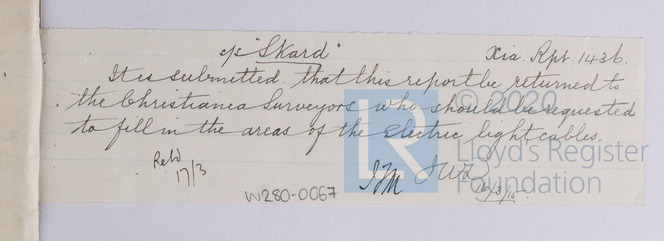 s/s "Skard" Xia. Rpt. 1436.
It is submitted that this report be returned to
the Christiania Surveyors who should be requested
to fill in the areas of the electric light cables.
Retd
17/3
W280-0067
© 2020
Lloyd's Register
Foundation
LR